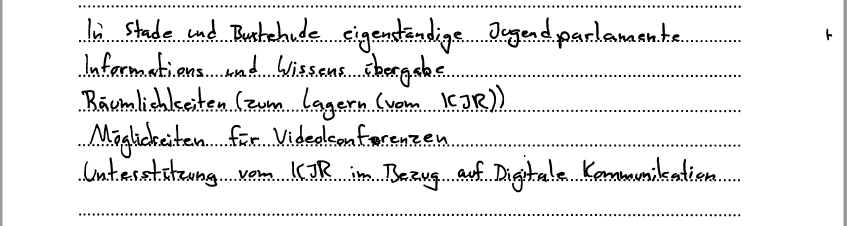 In Stade und Buxtehude eigenständige Jugendparlamente
Informations und Wissens übergabe
Räumlichkeiten (zum Lagern (vom KJR))
Möglickeiten für Videokonferenzen
Unterstützung vom KJR im Bezug auf Digitale Kommunikation